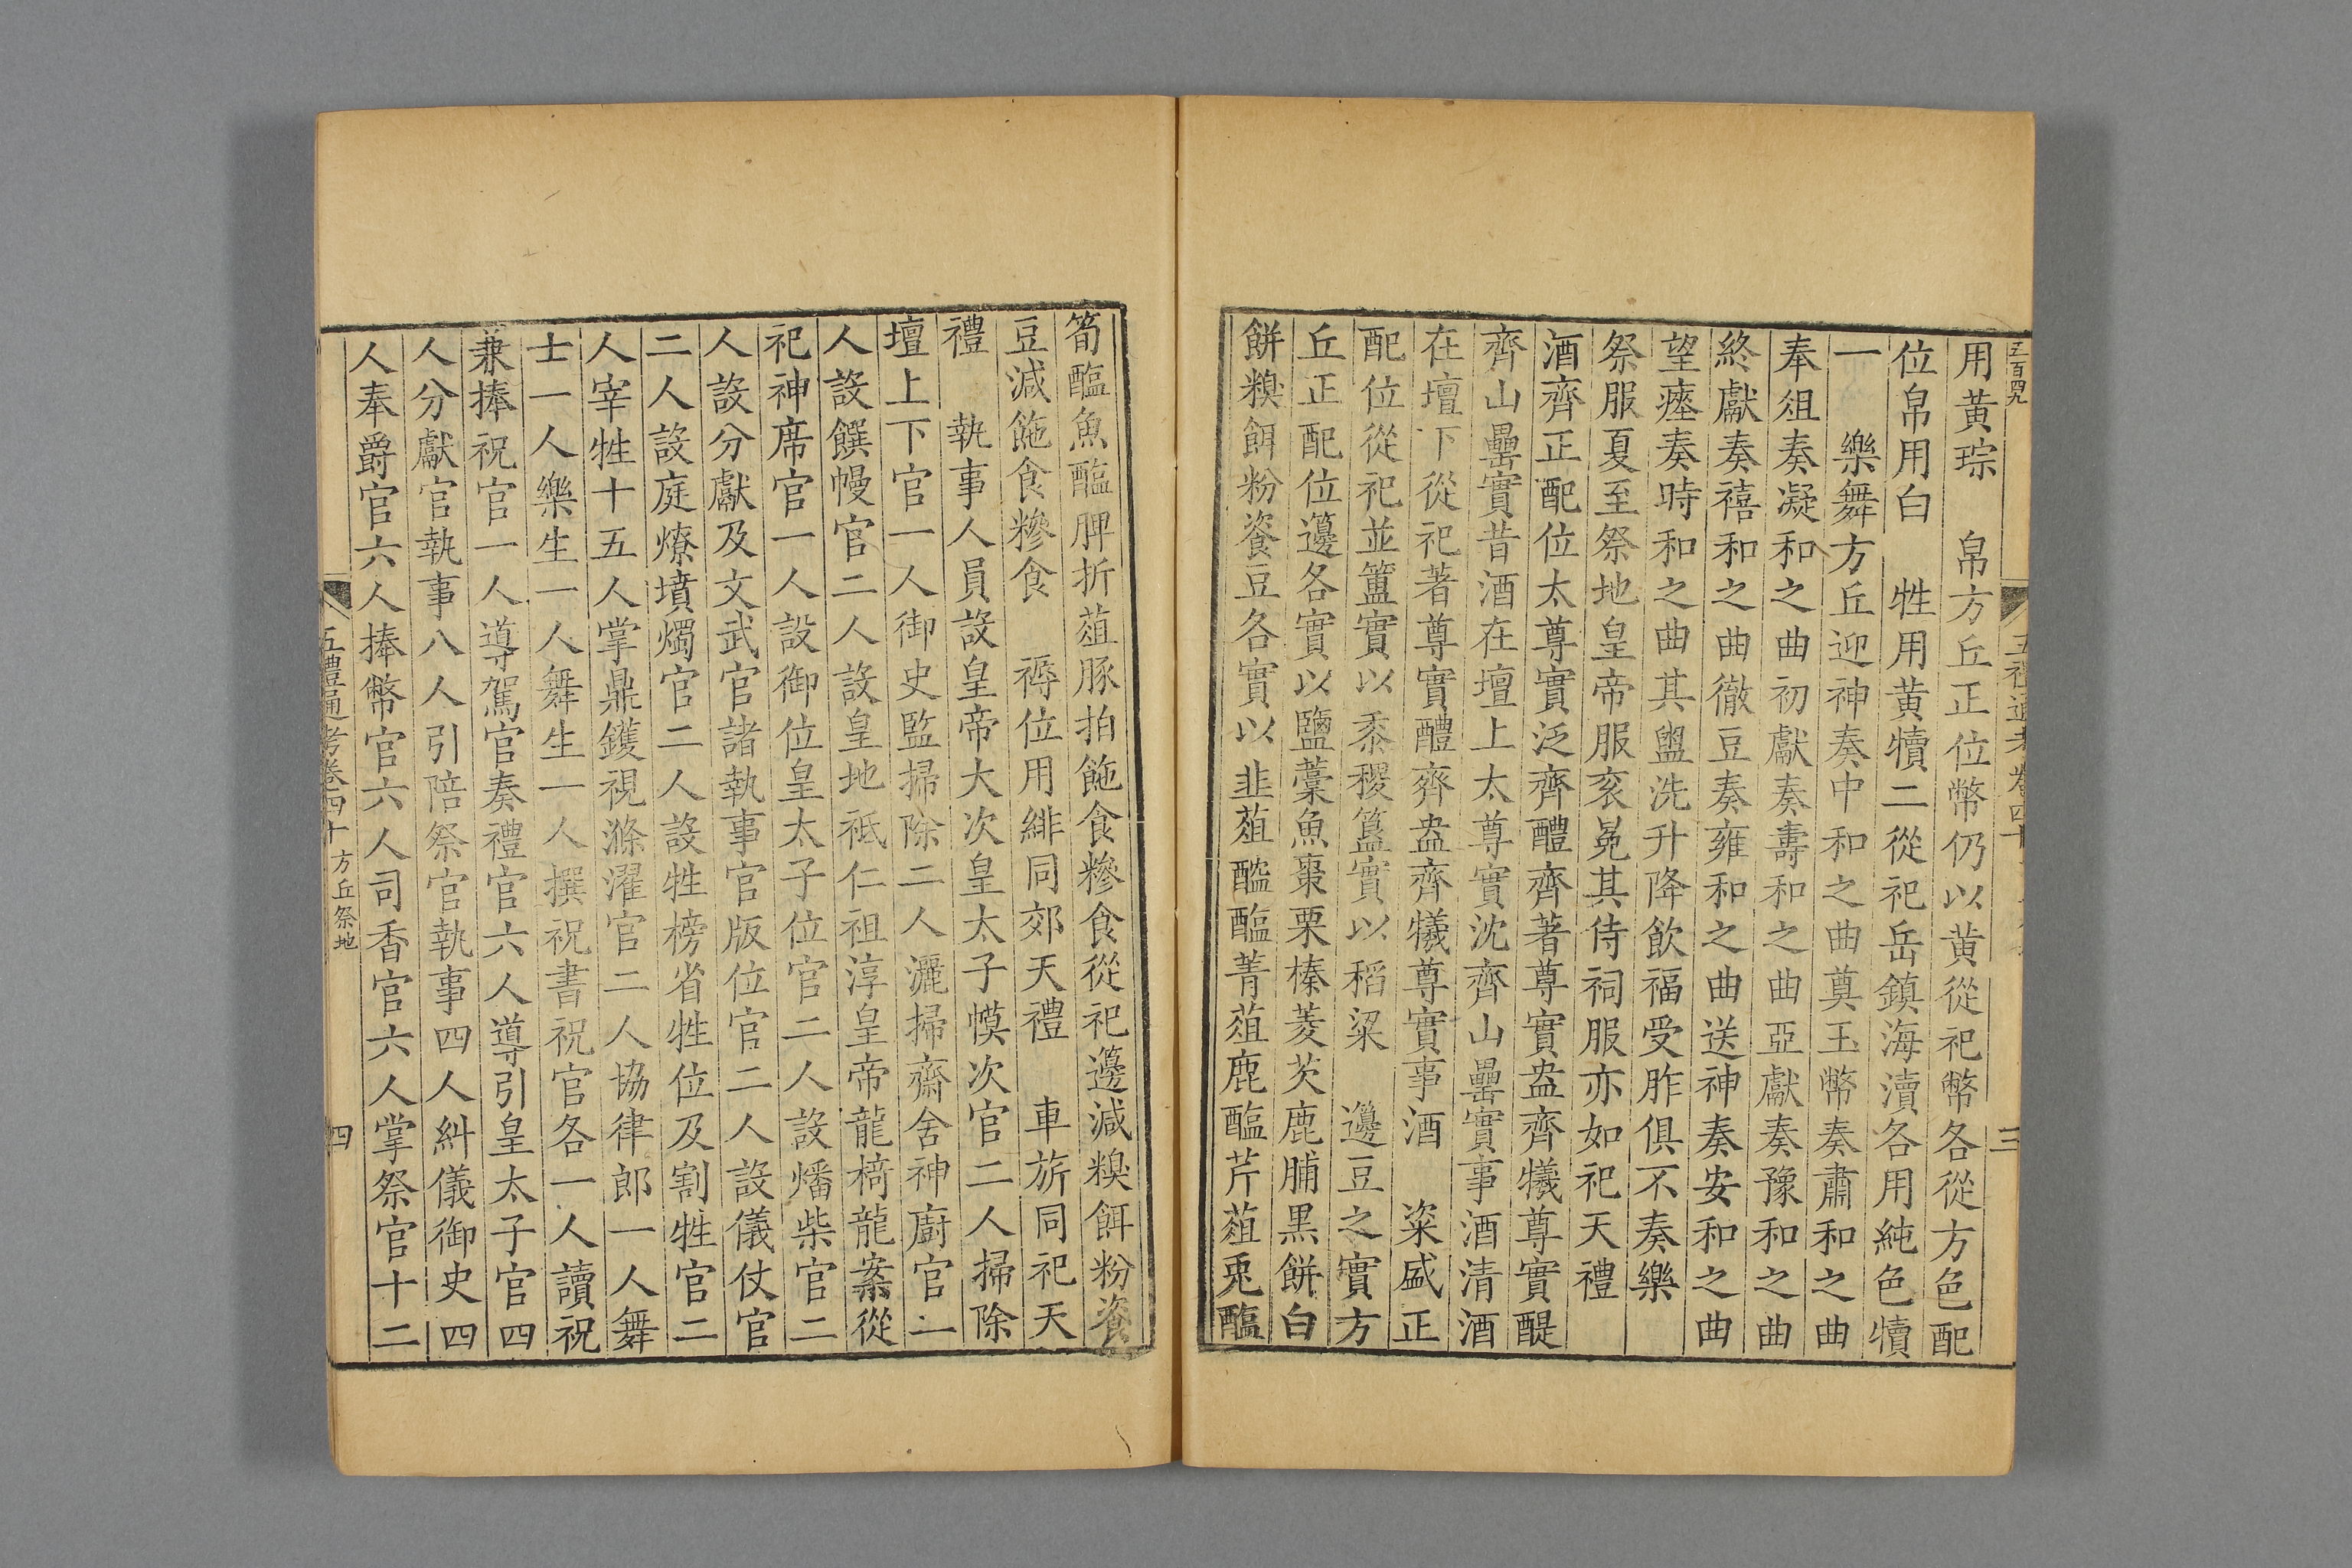 用黃琮　帛方丘正位幣仍以黃從祀幣各從方色配
位帛用白　牲用黃犢二從祀岳鎮海瀆各用純色犢
一　樂舞方丘迎神奏中和之曲奠玉幣奏肅和之曲
奉俎奏凝和之曲初獻奏壽和之曲亞獻奏豫和之曲
終獻奏禧和之曲徹豆奏雍和之曲送神奏安和之曲
望瘞奏時和之曲其盥洗升降飲福受胙俱不奏樂
祭服夏至祭地皇帝服衮冕其侍祠服亦如祀天禮
酒齊正配位太尊實泛齊醴齊著尊實盎齊犧尊實醍
齊山罍實昔酒在壇上太尊實沈齊山罍實事酒清酒
在壇下從祀著尊實醴齊盎齊犧尊實事酒　粢盛正
配位從祀並簠實以黍稷簋實以稻粱　籩豆之實方
丘正配位籩各實以鹽藁魚棗栗榛菱芡鹿脯黑餅白
餅糗餌粉餈豆各實以韭菹醓醢菁菹鹿醢芹菹兎醢
三
筍醢魚醢脾折菹豚拍飽食糝食從祀籩減糗餌粉餈
豆減飽食糝食　褥位用緋同郊天禮　車旂同祀天
禮　執事人員設皇帝大次皇太子幙次官二人掃除
壇上下官一人御史監掃除二人灑掃齋舍神廚官二
人設饌幔官二人設皇地祇仁祖淳皇帝龍椅龍案從
祀神席官一人設御位皇太子位官二人設燔柴官二
人設分獻及文武官諸執事官版位官二人設儀仗官
二人設庭燎墳燭官二人設牲榜省牲位及割牲官二
人宰牲十五人掌鼎鑊視滌濯官二人協律郎一人舞
士一人樂生一人舞生一人撰祝書祝官各一人讀祝
兼捧祝官一人導駕官奏禮官六人導引皇太子官四
人分獻官執事八人引陪祭官執事四人糾儀御史四
人奉爵官六人捧幣官六人司香官六人掌祭官十二
五禮通考卷四十　方丘祭地
四